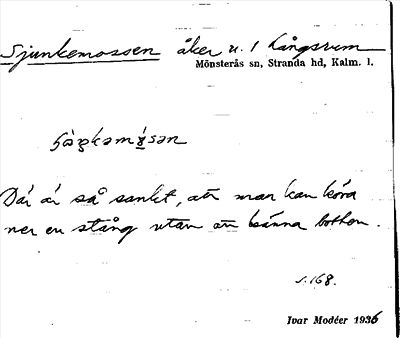 Sjunkemossen åker u. 1 Långsrum
Mönsterås sn, Stranda hd, Kalm. l.
Där är så sankt, att man kan köra
ner en stång utan att känna botten.
s. 168.
Ivar Modéer 1936